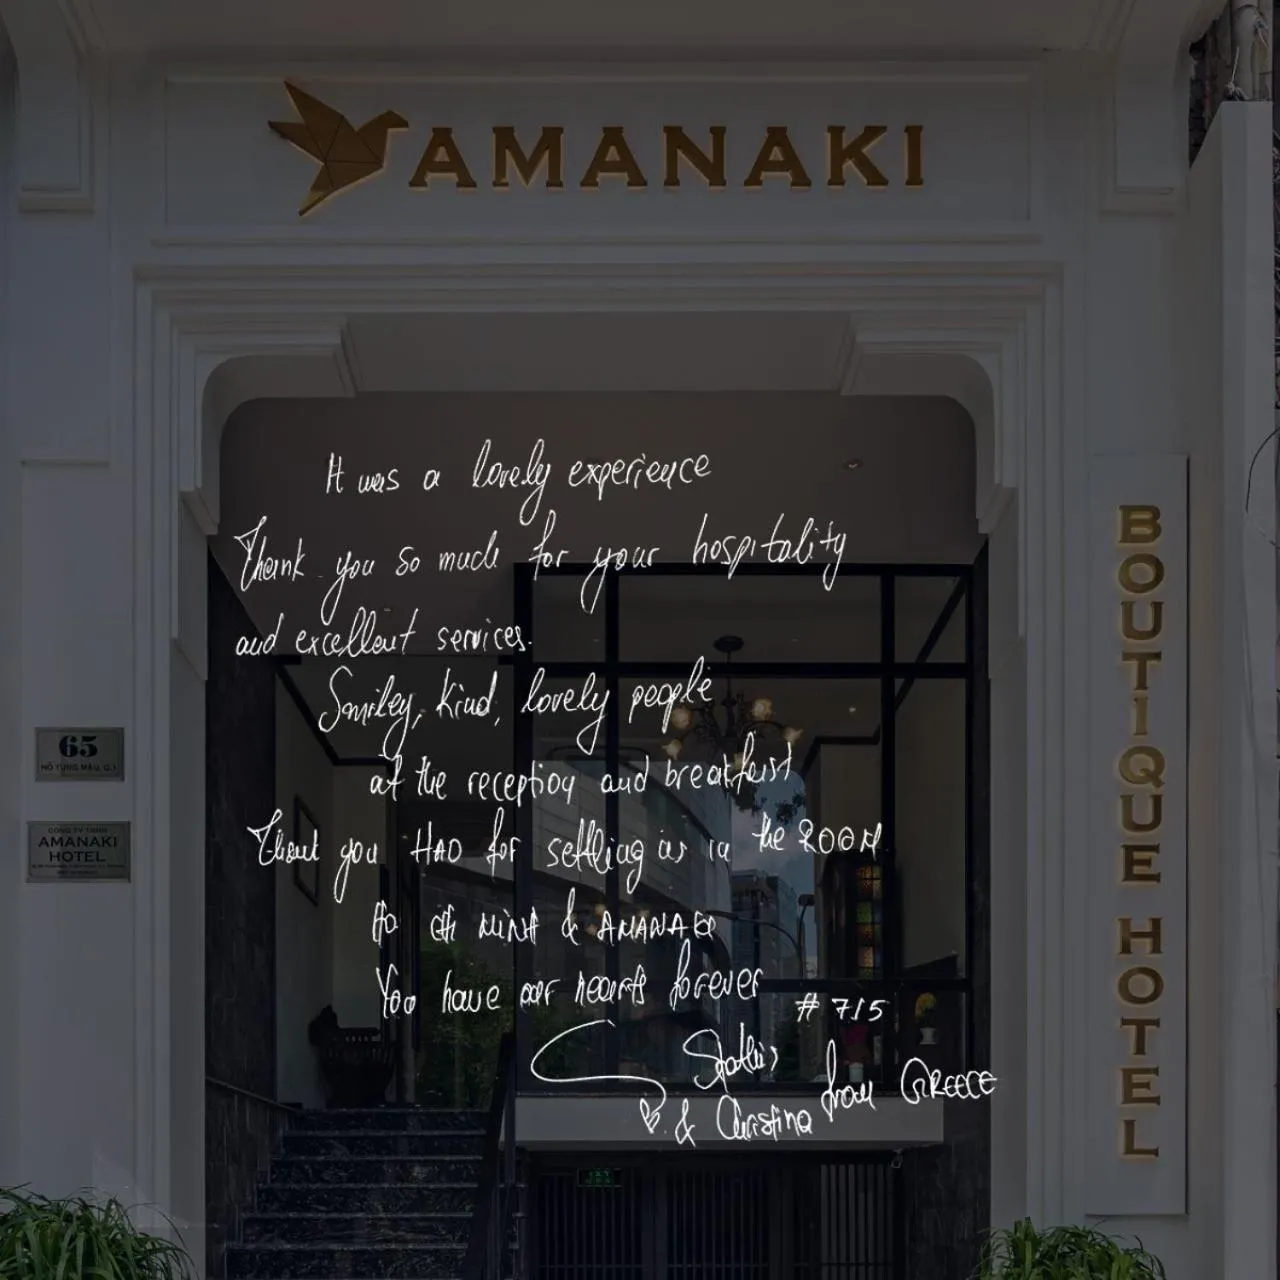 AMANAKI
BOUTIQUE HOTEL
65
HỒ TÙNG MẬU, Q.1
CÔNG TY TNHH
AMANAKI
HOTEL
It was a lovely experience
Thank you so much for your hospitality
and excellent services.
Smiley, kind, lovely people
at the reception and breakfast
Thank you HAO for settling us in the ROOM
HO CHI MINH & AMANAKI
You have our hearts forever
# 715
Stathis
& Christina from GREECE